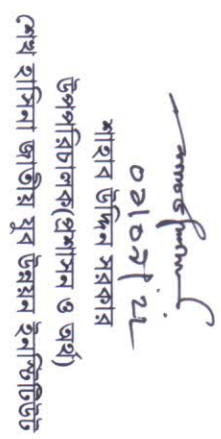 ০২।০২।২২
শাহাব উদ্দিন সরকার
উপপরিচালক(প্রশাসন ও অর্থ)
শেখ হাসিনা জাতীয় যুব উন্নয়ন ইনস্টিটিউট